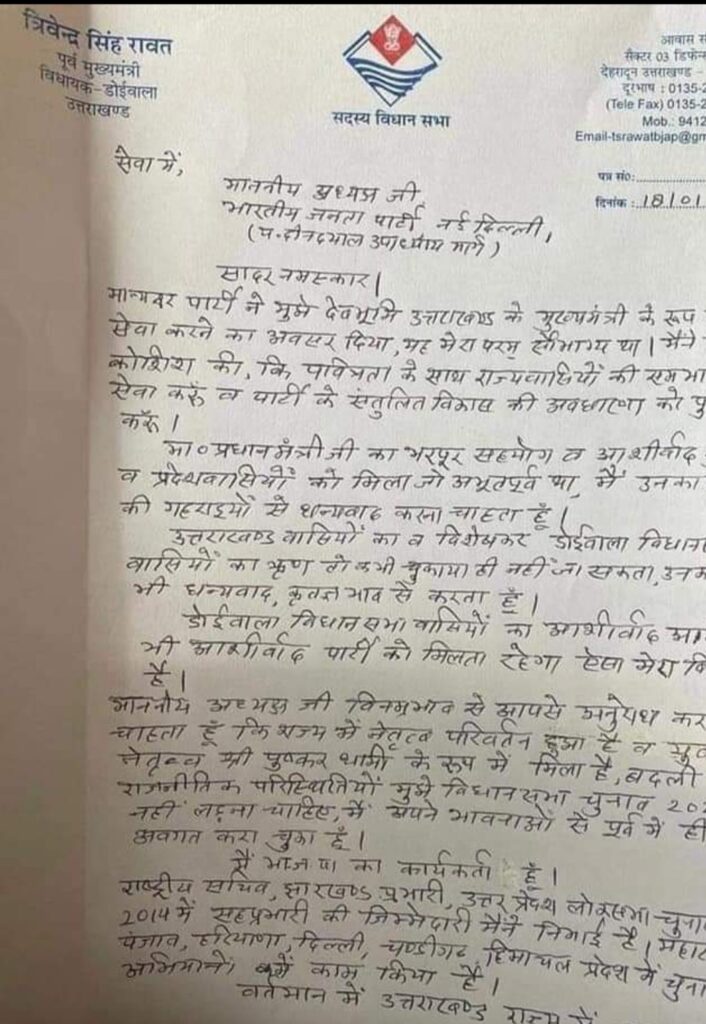 त्रिवेन्द्र सिंह रावत
पूर्व मुख्यमंत्री
विधायक-डोईवाला
उत्तराखण्ड
सदस्य विधान सभा
आवास
सैक्टर 03 डिफेन्
देहरादून उत्तराखण्ड -
दूरभाष : 0135-2
(Tele Fax) 0135-2
Mob.: 9412
Email-tsrawatbjap@gm
पत्र सं०:
दिनांक : 18/01
सेवा में,
माननीय अध्यक्ष जी
भारतीय जनता पार्टी नई दिल्ली,
(प. दीनदयाल उपाध्याय मार्ग)
सादर नमस्कार।
मान्यवर पार्टी ने मुझे देवभूमि उत्तराखण्ड के मुख्यमंत्री के रूप
सेवा करने का अवसर दिया, यह मेरा परम सौभाग्य था। मैंने
कोशिश की, कि पवित्रता के साथ राज्यवासियों की समभा
सेवा करूँ व पार्टी के संतुलित विकास की अवधारणा को पु
करूँ।
मा० प्रधानमंत्री जी का भरपूर सहयोग व आशीर्वाद
व प्रदेशवासियों को मिला जो अभूतपूर्व था, मैं उनका
की गहराइयों से धन्यवाद करना चाहता हूँ।
उत्तराखण्ड वासियों का व विशेषकर डोईवाला विधान
वासियों का ऋण तो कभी चुकाया ही नहीं जा सकता, उनक
भी धन्यवाद, कृतज्ञ भाव से करता हूँ।
डोईवाला विधान सभा वासियों का आशीर्वाद आ
भी आशीर्वाद पार्टी को मिलता रहेगा ऐसा मेरा वि
है।
माननीय अध्यक्ष जी विनम्रभाव से आपसे अनुरोध कर
चाहता हूँ कि राज्य में नेतृत्व परिवर्तन हुआ है व युव
नेतृत्व श्री पुष्कर धामी के रूप में मिला है, बदली
राजनीतिक परिस्थितियों मुझे विधानसभा चुनाव 202
नहीं लड़ना चाहिए, मैं अपने भावनाओं से पूर्व में ही
अवगत करा चुका हूँ।
मैं भाजपा का कार्यकर्ता हूँ।
राष्ट्रीय सचिव, झारखण्ड प्रभारी, उत्तर प्रदेश लोकसभा-चुना
2014 में सहप्रभारी की जिम्मेदारी मैंने निभाई है। महारा
पंजाब, हरियाणा, दिल्ली, चण्डीगढ़, हिमाचल प्रदेश में चुना
अभियानों में काम किया है।
वर्तमान में उत्तराखण्ड राज्य में